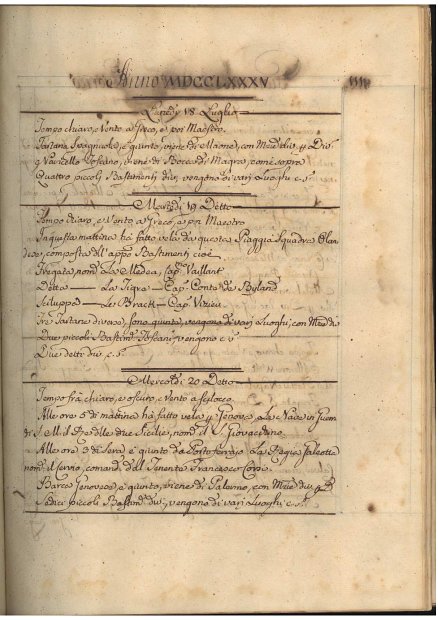 Anno MDCCLXXXV
Lunedì 18 Luglio
Tempo chiaro, e Vento a Greco, e poi Maestro.
Tartana Spagnuola, è giunta, viene di Maone, con Merc
Navicello Toscano, viene di Bocca di Magra, come sopra
Quattro piccoli Bastimenti div. vengono di vari Luoghi c. s.
Martedì 19 Detto
Tempo chiaro, e Vento a Greco, e poi Maestro
In questa mattina hà fatto vela da questa Spiaggia Squadra Olan
dese, composta dell' app. Bastimenti cioè
Fregata nom. La Medea, Cap. Vaillant
Detta La Cap. Conte de Byland
Sciluppo Le Brack Cap.
Tre Tartane diverse, sono giunte, vengono di vari Luoghi, con Merc. di
Due piccoli Bastim. Toscani, vengono c. s.
Due detti div. c. s.
Mercoldì 20 Detto
Tempo frà chiaro, e oscuro, e Vento a Scilocco.
Alle ore 5 di mattina hà fatto vela p. Genova, La Nave di Guer
di S. M. il Rè delle due Sicilie, nom. il S. Giovacchino.
Alle ore 9 di Sera è giunto da Portoferrajo La Galeotta
nom. il Cervio, comand. dal Tenente Francesco
Barca Genovese, è giunta, viene di Palermo, con Merc. div.
Sedici piccoli Bastim. div., vengono di vari Luoghi, c. s.